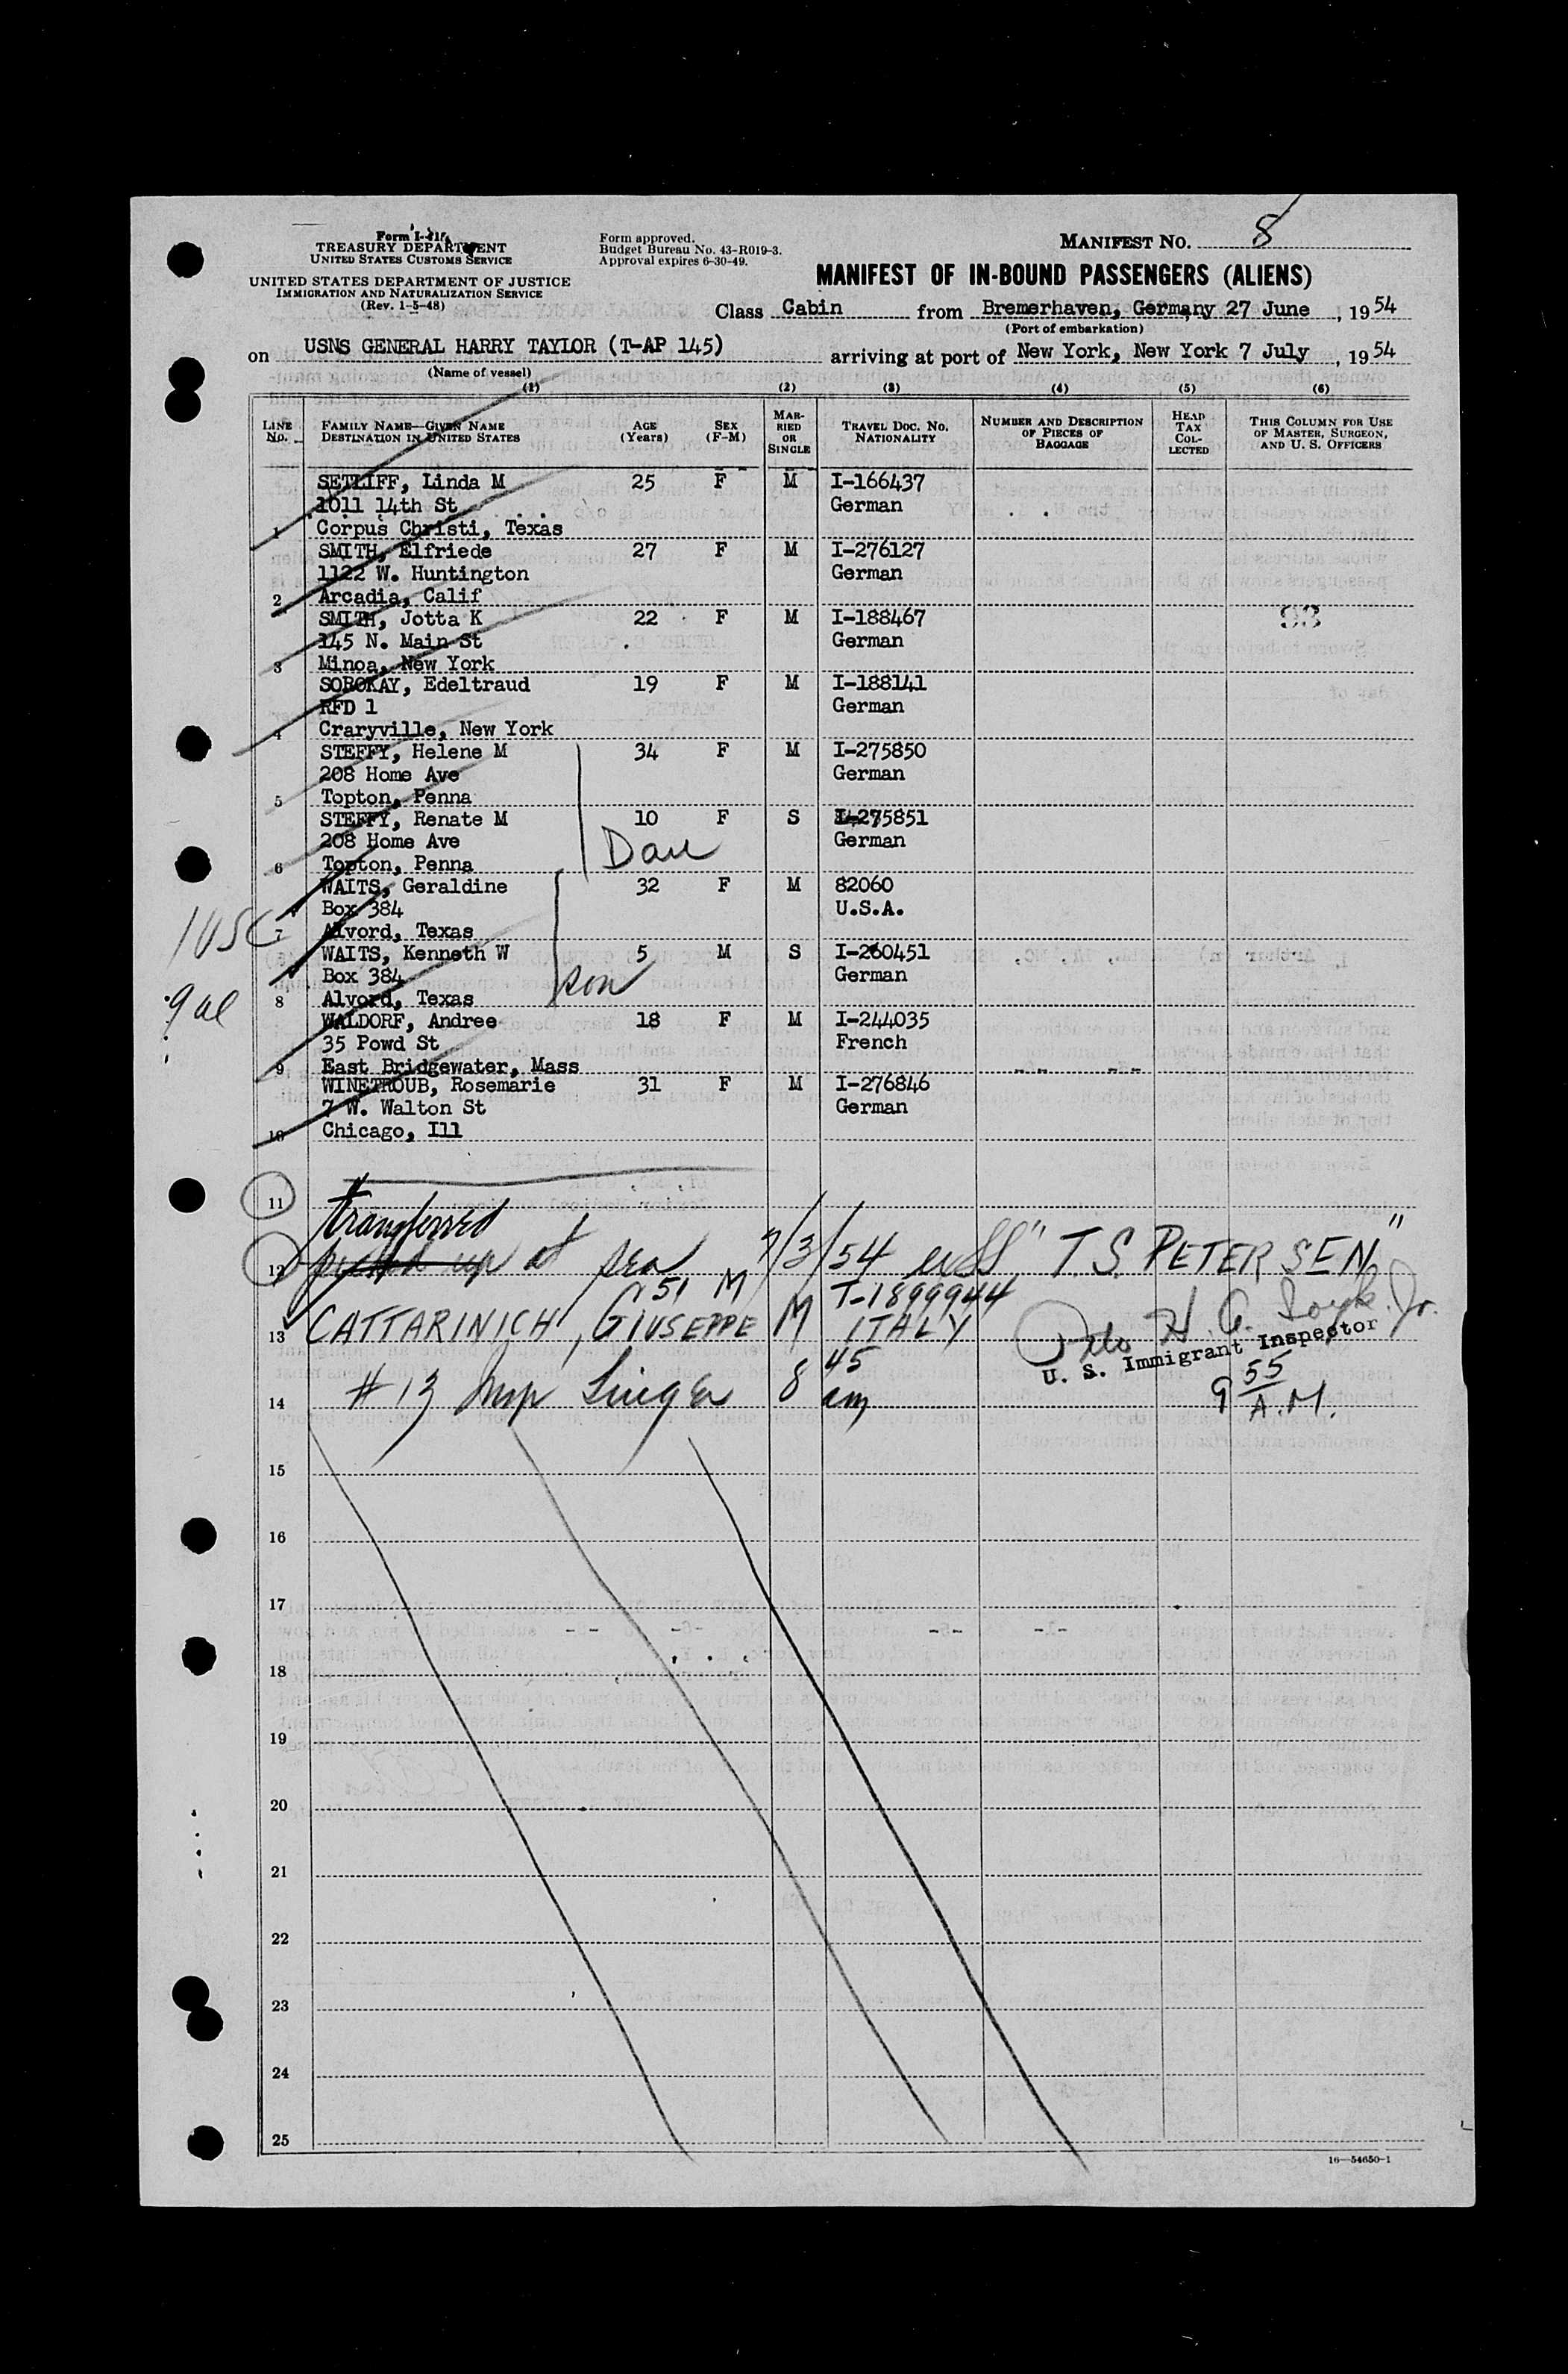 Form I-418
TREASURY DEPARTMENT
UNITED STATES CUSTOMS SERVICE
UNITED STATES DEPARTMENT OF JUSTICE
IMMIGRATION AND NATURALIZATION SERVICE
(Rev. 1-5-48)
Form approved.
Budget Bureau No. 43-R019-3.
Approval expires 6-30-49.
MANIFEST NO. 8
MANIFEST OF IN-BOUND PASSENGERS (ALIENS)
Class Cabin from Bremerhaven, Germany 27 June, 1954
(Port of embarkation)
on USNS GENERAL HARRY TAYLOR (T-AP 145) arriving at port of New York, New York 7 July, 1954
(Name of vessel)
(1) (2) (3) (4) (5) (6)
LINE No. FAMILY NAME—GIVEN NAME DESTINATION IN UNITED STATES AGE (Years) SEX (F-M) MARRIED OR SINGLE TRAVEL DOC. NO. NATIONALITY NUMBER AND DESCRIPTION OF PIECES OF BAGGAGE HEAD TAX COLLECTED THIS COLUMN FOR USE OF MASTER, SURGEON, AND U. S. OFFICERS
SETLIFF, Linda M 25 F M I-166437
1011 14th St German
1 Corpus Christi, Texas
SMITH, Elfriede 27 F M I-276127
1122 W. Huntington German
2 Arcadia, Calif
SMITH, Jotta K 22 F M I-188467 93
145 N. Main St German
3 Minoa, New York
SOROKAY, Edeltraud 19 F M I-188141
RFD 1 German
4 Craryville, New York
STEFFY, Helene M 34 F M I-275850
208 Home Ave German
5 Topton, Penna
STEFFY, Renate M 10 F S I-275851
208 Home Ave Dau German
6 Topton, Penna
WAITS, Geraldine 32 F M 82060
Box 384 U.S.A.
1 USC 7 Alvord, Texas
WAITS, Kenneth W 5 M S I-260451
Box 384 son German
9 al 8 Alvord, Texas
WALDORF, Andree 18 F M I-244035
35 Powd St French
9 East Bridgewater, Mass
WINETROUB, Rosemarie 31 F M I-276846
7 W. Walton St German
10 Chicago, Ill
11
transferred
12 picked up at sea 7/3/54 ex SS "T.S. PETERSEN"
51 M T-1899944
13 CATTARINICH, GIUSEPPE M ITALY
U. S. Immigrant Inspector
14 #13 8 45 am 9 55 A.M.
15
16
17
18
19
20
21
22
23
24
25
16—54650-1